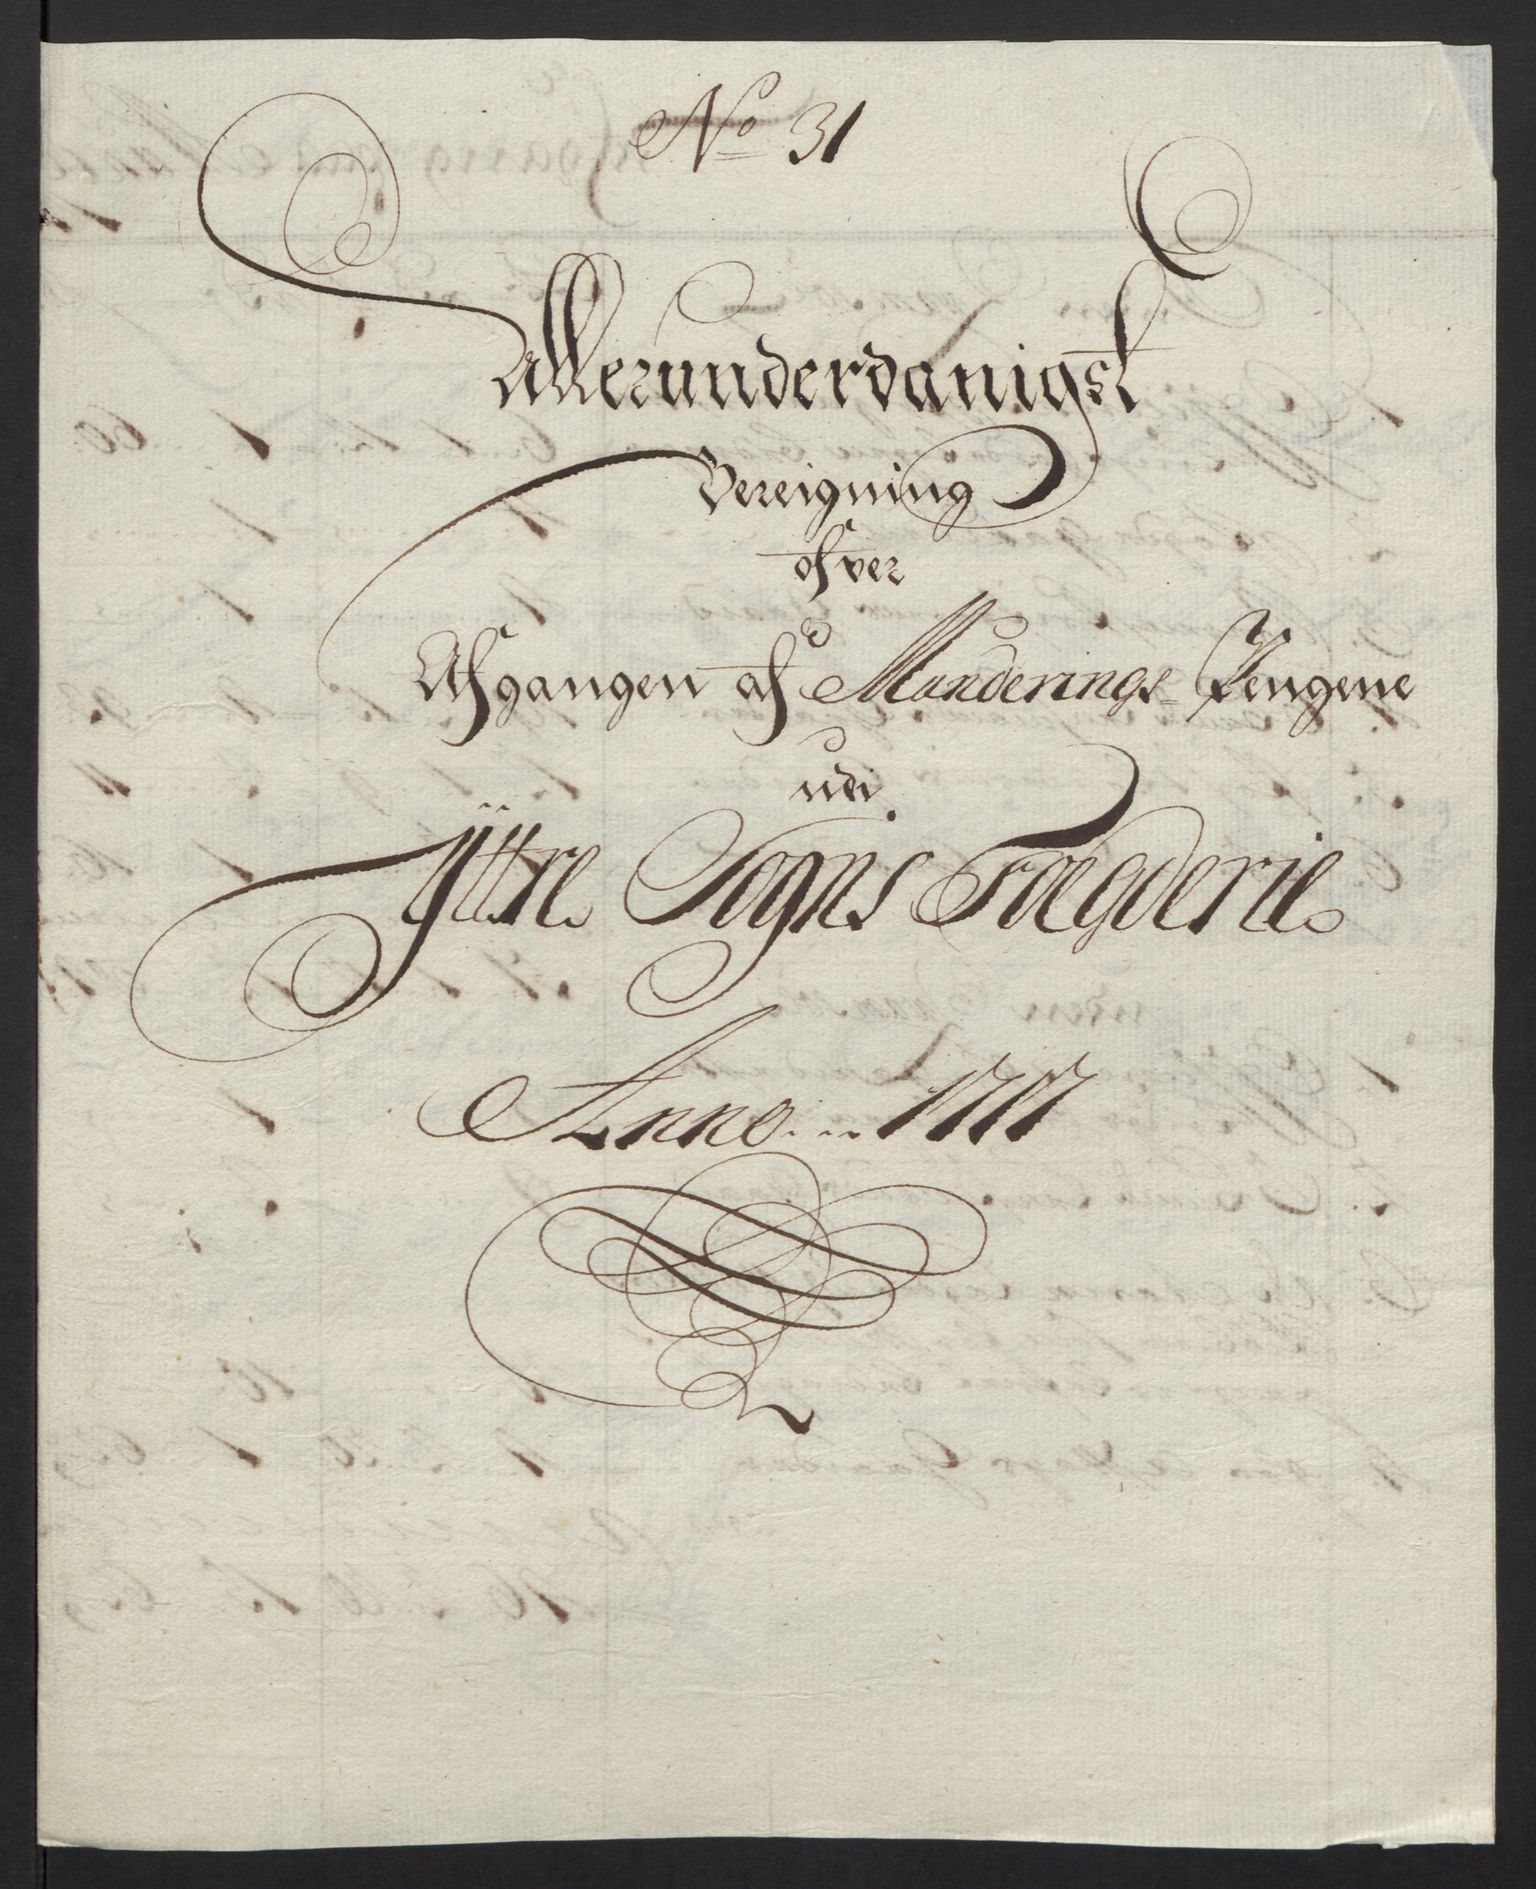 No 31
Allerunderdanigst
Bereigning
ofver
Afgangen af Munderings-Pengene
udi
Ÿttre Sogns Foegderie
Anno 1717